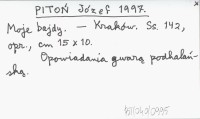 PITOŃ Józef 1997.
Moje bajdy. — Kraków. Ss. 142,
opr., cm 15 x 10.
Opowiadania gwarą podhalań-
ską.